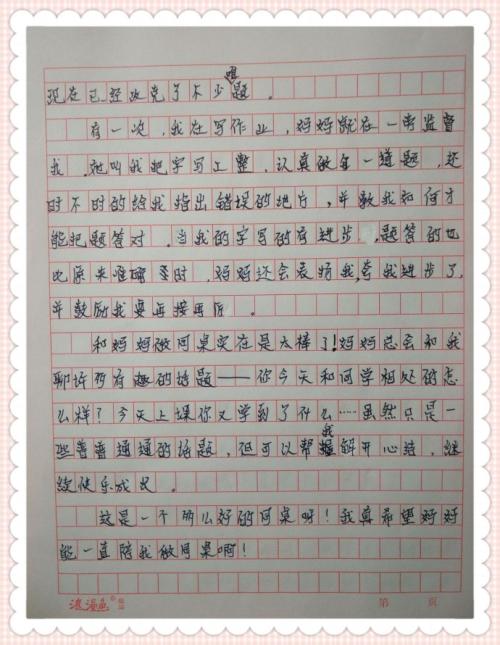 现在已经攻克了不少难题。
有一次，我在写作业，妈妈就在一旁监督
我，她叫我把字写工整，认真做每一道题，还
时不时的给我指出错误的地方，并教我如何才
能把题答对。当我的字写的有进步，题答的也
比原来准确多时，妈妈还会表扬我，夸我进步了，
并鼓励我要再接再厉。
和妈妈做同桌实在是太棒了！妈妈总会和我
聊许多有趣的话题——你今天和同学相处的怎
么样？今天上课你又学到了什么……虽然只是一
些普普通通的话题，但可以帮我解开心结，继
续快乐成长。
这是一个多么好的同桌呀！我真希望妈妈
能一直陪我做同桌啊！
浪漫鱼
第 页